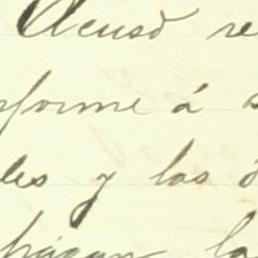 Acuso re
forme á s
les y los d
hagan la